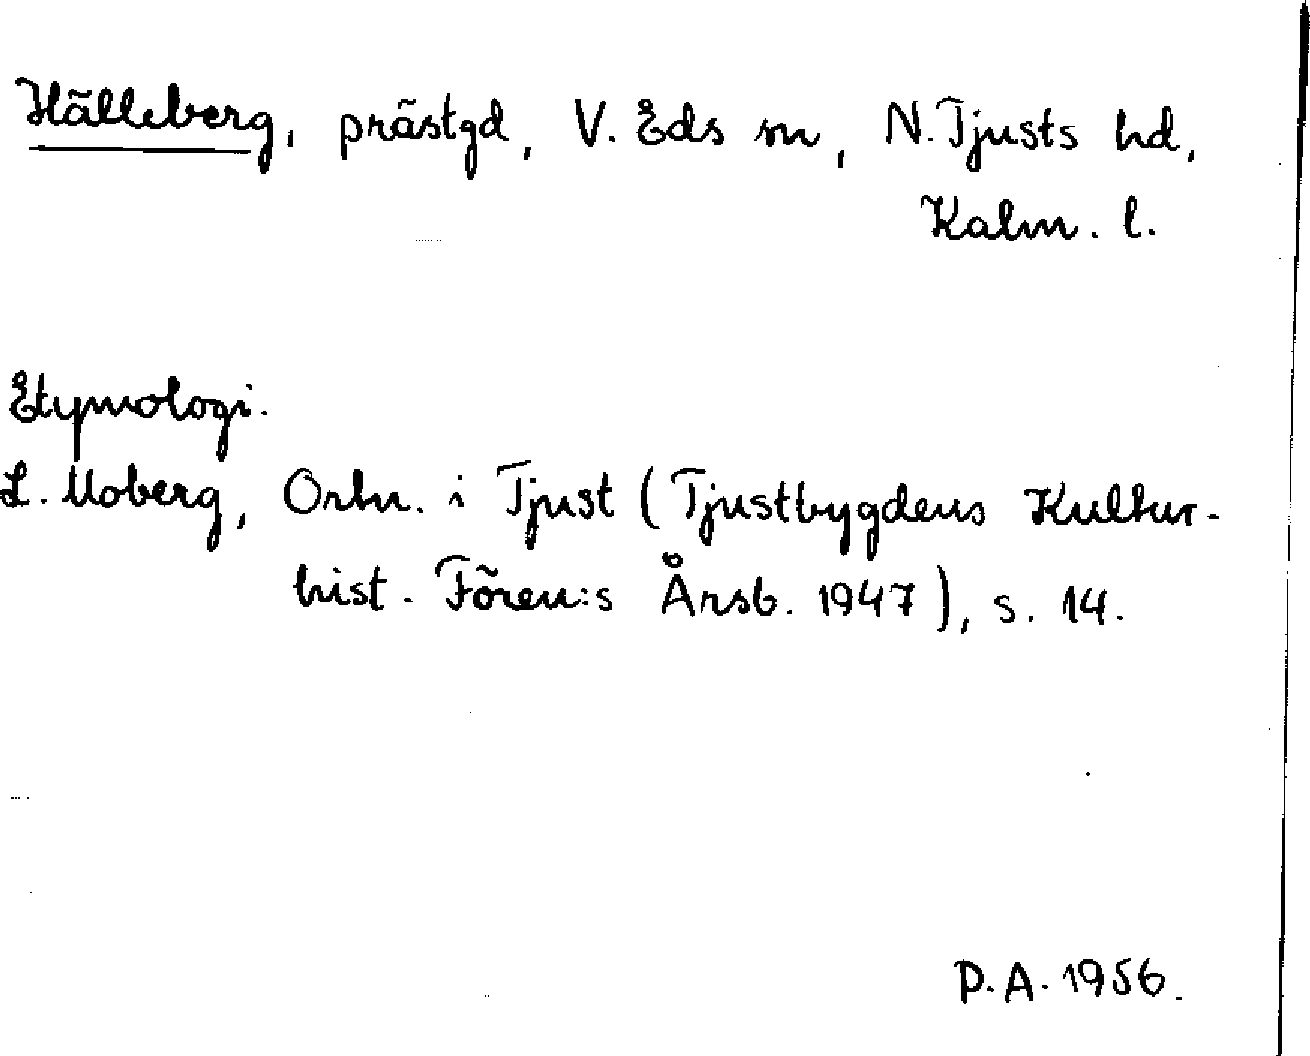 Hälleberg, prästgd, V. Eds sn, N. Tjusts hd,
Kalm. l.
Etymologi.
L. Moberg, Ortn. i Tjust (Tjustbygdens Kultur-
hist. Fören:s Årsb. 1947), s. 14.
P. A. 1956.